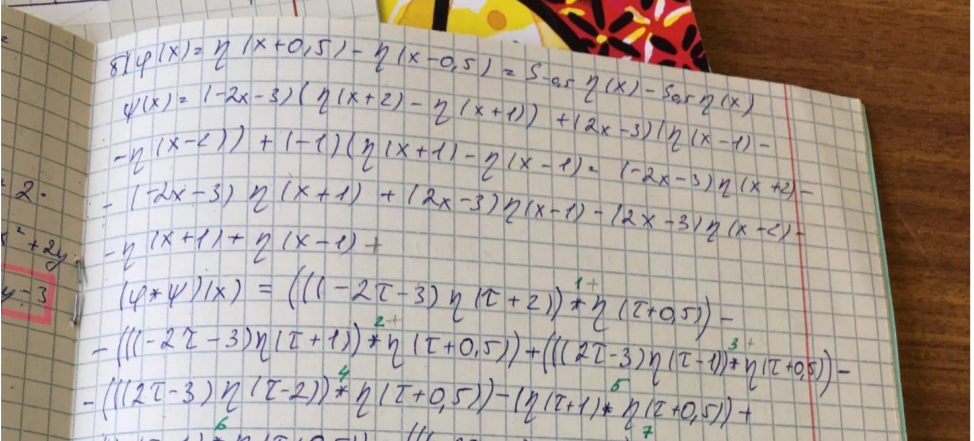 б) φ(x) = η(x+0,5) - η(x-0,5) = S-0,5 η(x) - S0,5 η(x)
ψ(x) = (-2x-3)(η(x+2) - η(x+1)) + (2x-3)(η(x-1) -
- η(x-2)) + (-1)(η(x+1) - η(x-1) = (-2x-3)η(x+2) -
- (-2x-3) η(x+1) + (2x-3)η(x-1) - (2x-3)η(x-2) -
- η(x+1) + η(x-1) +
- 2.
x² + 2y
y-3
1+
(φ*ψ)(x) = (((-2τ-3) η(τ+2)) * η(τ+0,5)) -
2+ 3+
- (((-2τ-3)η(τ+1)) * η(τ+0,5)) + (((2τ-3)η(τ-1)) * η(τ+0,5)) -
4 5
- (((2τ-3) η(τ-2)) * η(τ+0,5)) - (η(τ+1) * η(τ+0,5)) +
6 7